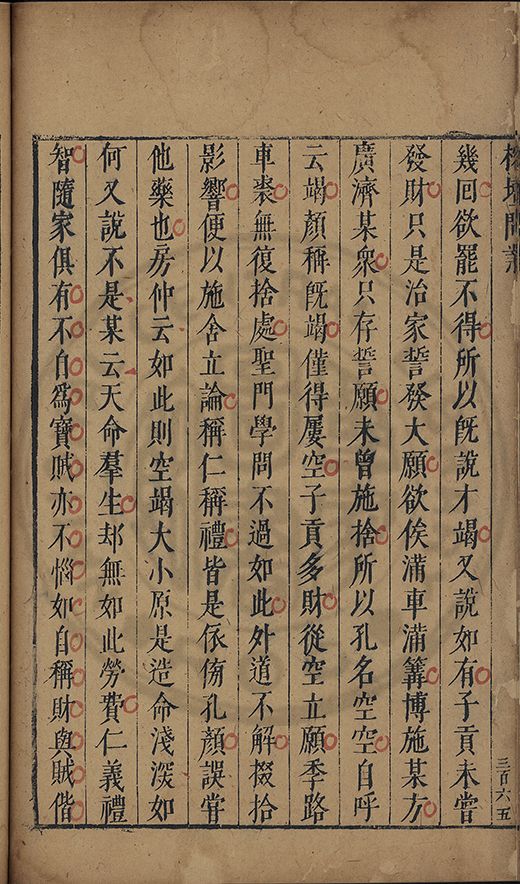 幾回欲罷不得所以旣說才竭又說如有子貢未嘗
發財只是治家誓發大願欲俟滿車滿篝博施某方
廣濟某衆只存誓願未曾施捨所以孔名空空自呼
云竭顏稱旣竭僅得屢空子貢多財從空立願季路
車裘無復捨處聖門學問不過如此外道不解掇拾
影響便以施舍立論稱仁稱禮皆是依傍孔顏誤嘗
他藥也房仲云如此則空竭大小原是造命淺深如
何又說不是某云天命羣生却無如此勞費仁義禮
智隨家俱有不自爲寶賊亦不惱如自稱財與賊偕
三百六五